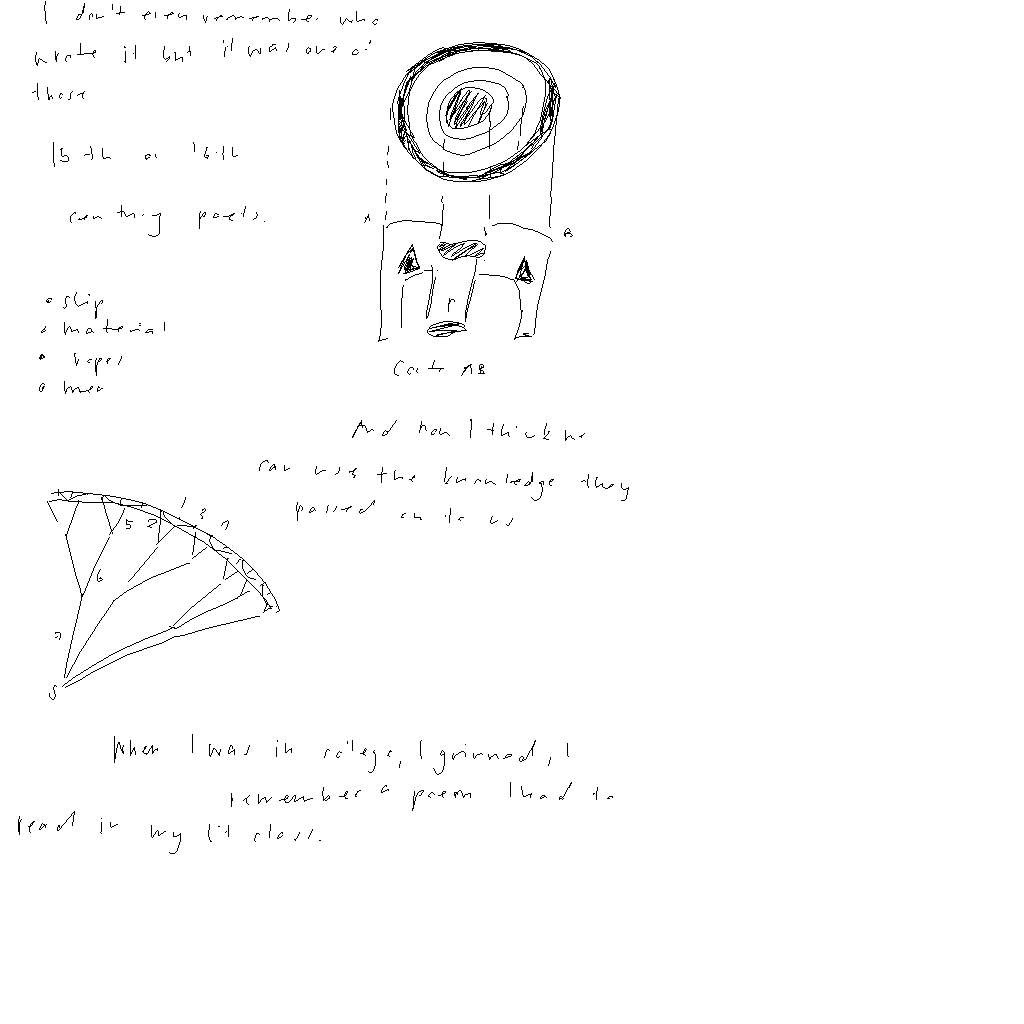 I don't even remember who
wrote it but it was one of
those
15th or 16th
century poets.
A
B
• slip
• material
• ropes
r
Coste AB
And now I think we
can use the knowledge they
passed on to us
1
5 2 3
6
S
When I was in college, I grinned, I
remember a poem I had to
read in my lit class.